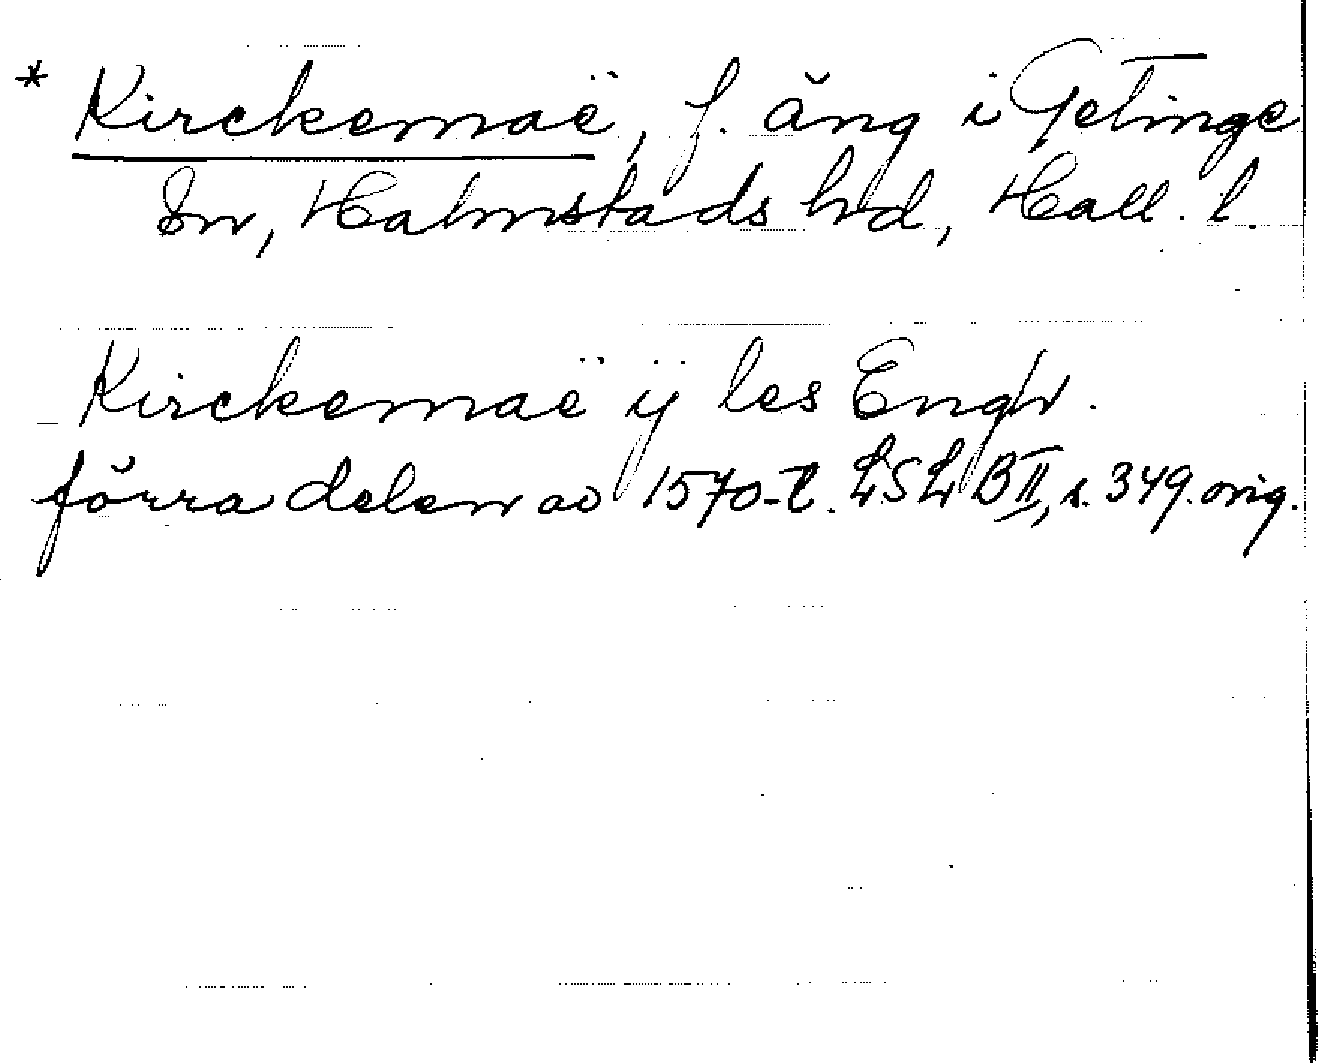 * Kirckemaë, f. äng i Getinge
sn, Halmstads hd, Hall. l.
Kirckemaë ÿ les Engh.
förra delen av 1570-t. LSLH B II, s. 349. orig.